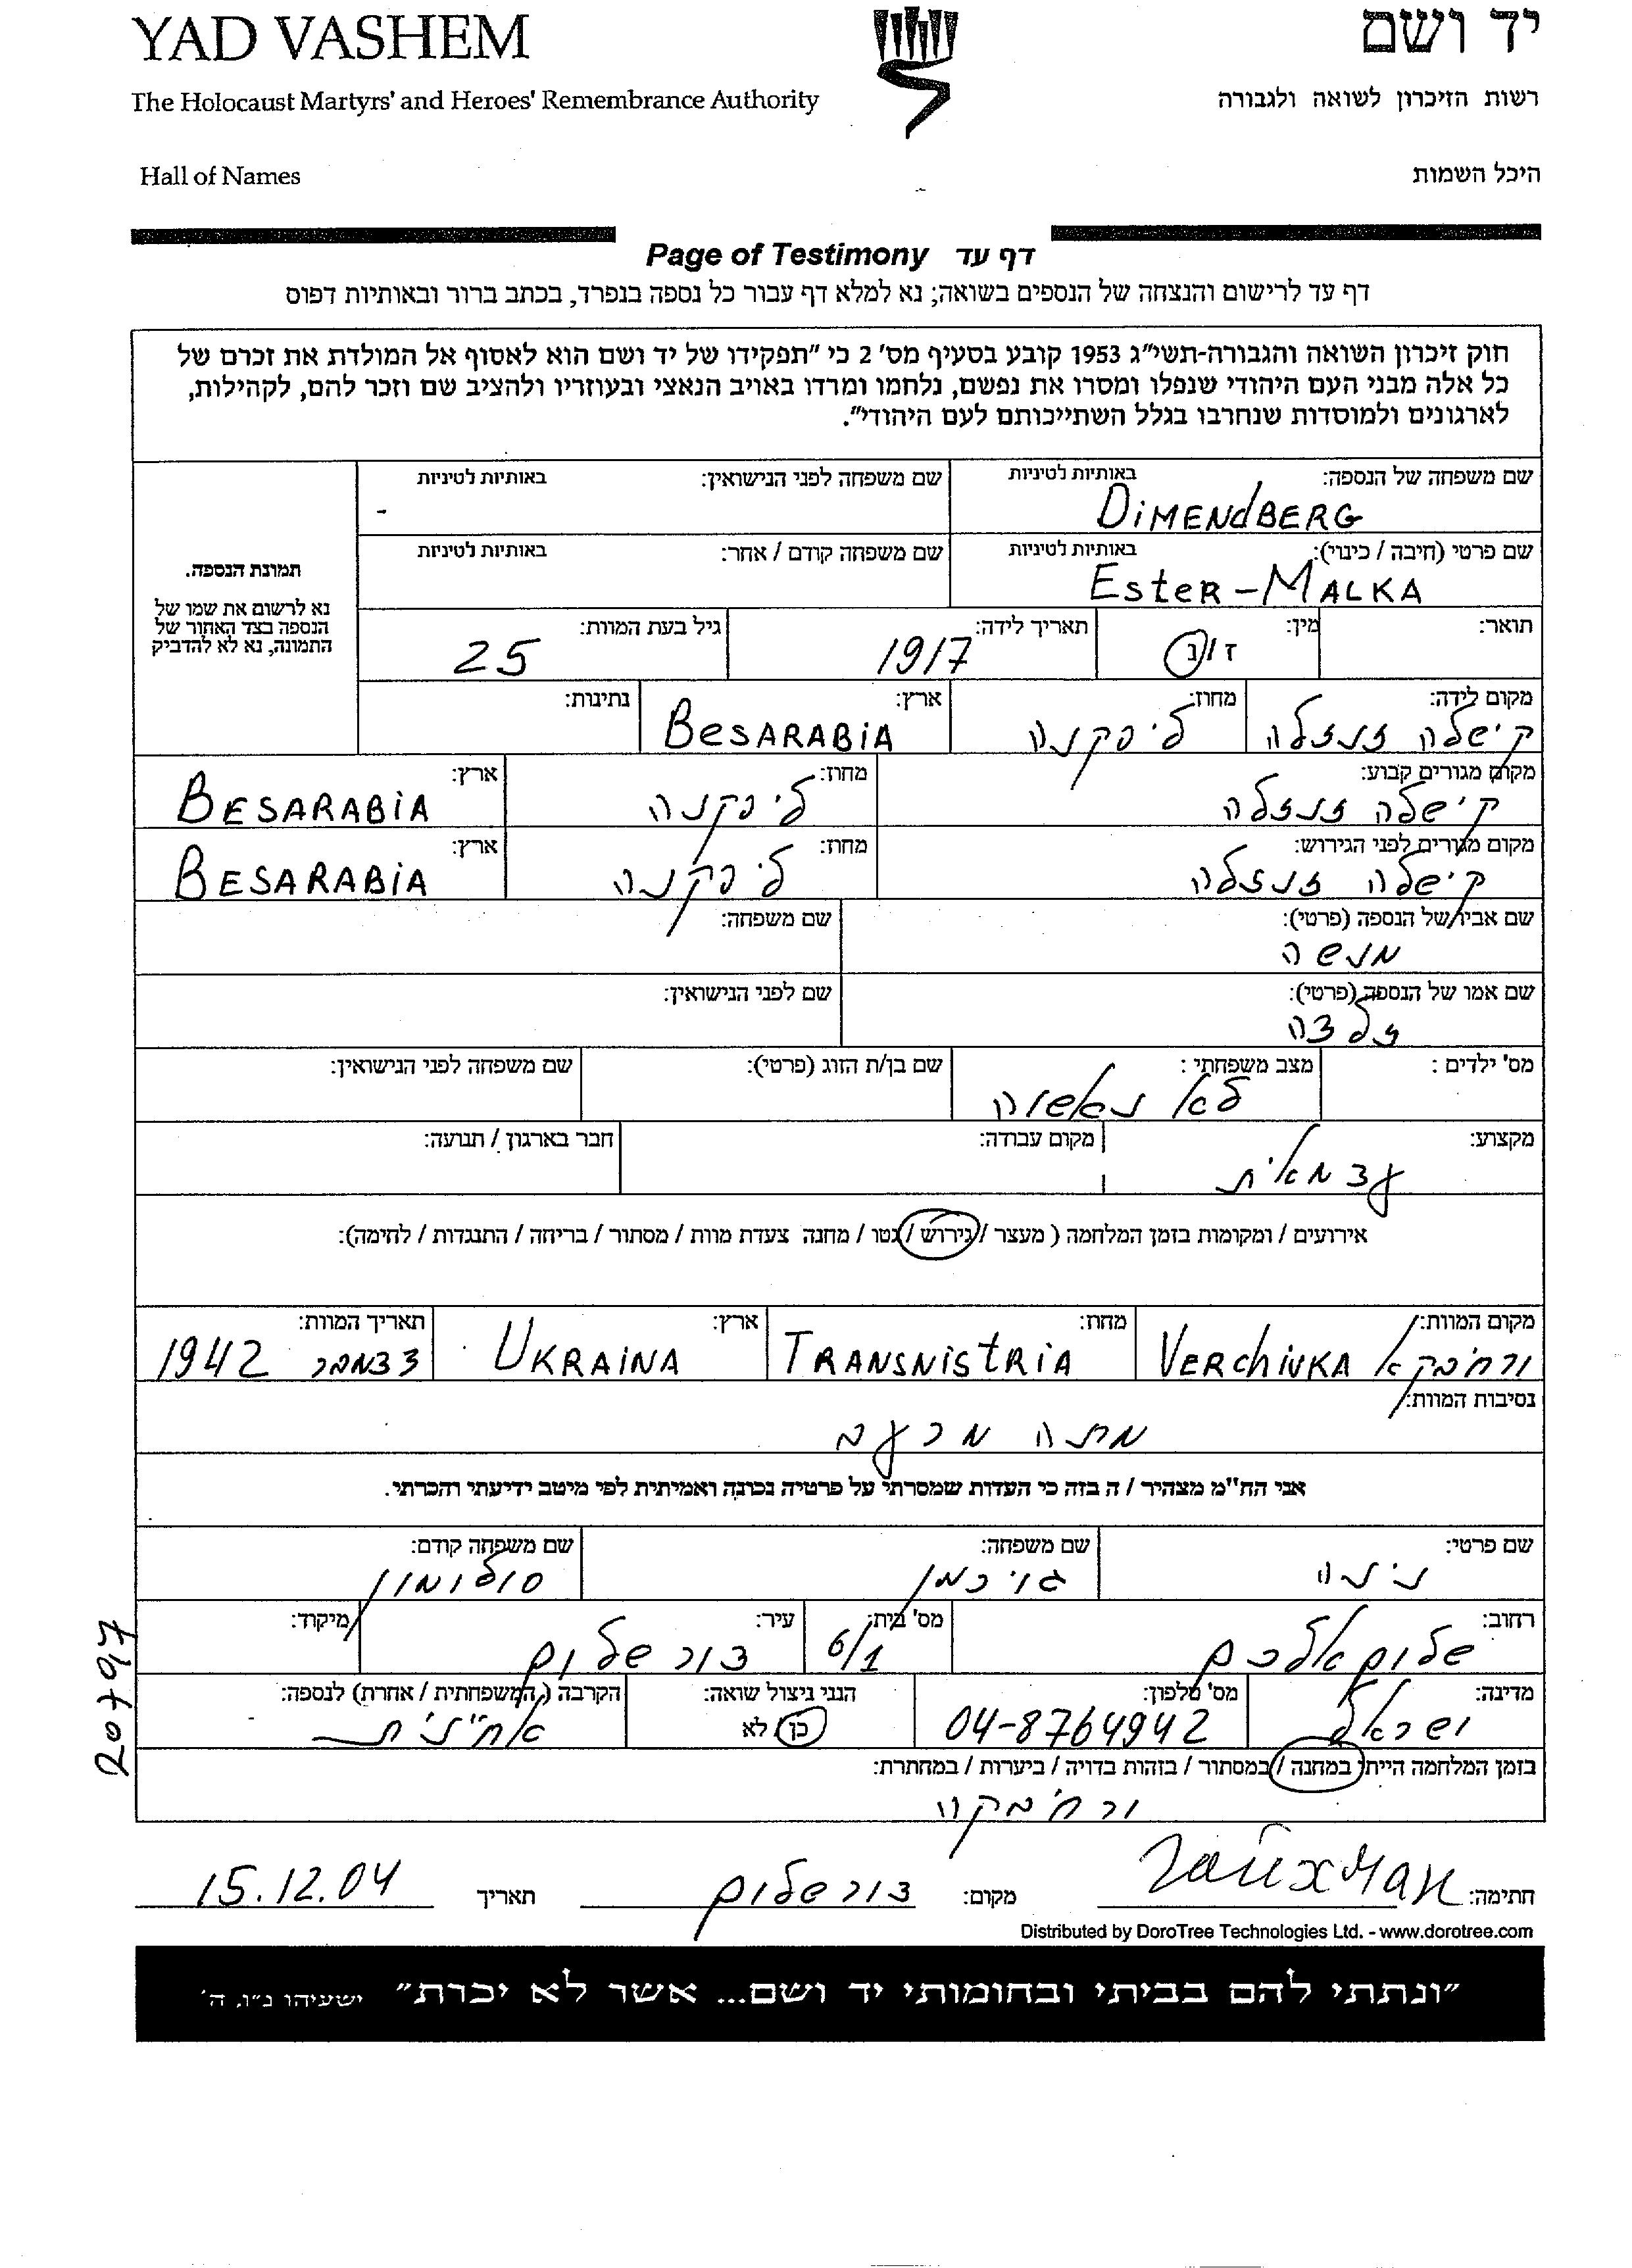 YAD VASHEM
יד ושם
The Holocaust Martyrs' and Heroes' Remembrance Authority
רשות הזיכרון לשואה ולגבורה
Hall of Names
היכל השמות
Page of Testimony דף עד
דף עד לרישום והנצחה של הנספים בשואה; נא למלא דף עבור כל נספה בנפרד, בכתב ברור ובאותיות דפוס
חוק זיכרון השואה והגבורה-תשי"ג 1953 קובע בסעיף מס' 2 כי "תפקידו של יד ושם הוא לאסוף אל המולדת את זכרם של
כל אלה מבני העם היהודי שנפלו ומסרו את נפשם, נלחמו ומרדו באויב הנאצי ובעוזריו ולהציב שם וזכר להם, לקהילות,
לארגונים ולמוסדות שנחרבו בגלל השתייכותם לעם היהודי".
שם משפחה של הנספה: באותיות לטיניות שם משפחה לפני הנישואין: באותיות לטיניות
DiMENdBERG -
שם פרטי (חיבה / כינוי): באותיות לטיניות שם משפחה קודם / אחר: באותיות לטיניות
EsteR-MALKA
תמונת הנספה.
נא לרשום את שמו של
הנספה בצד האחור של
התמונה, נא לא להדביק
תואר: מין: ז / נ תאריך לידה: 1917 גיל בעת המוות: 25
מקום לידה: מחוז: ארץ: נתינות:
קישלה זנזלה ליפקנה BeSARABiA
מקום מגורים קבוע: מחוז: ארץ:
קישלה זנזלה ליפקנה BESARABiA
מקום מגורים לפני הגירוש: מחוז: ארץ:
קישלה זנזלה ליפקנה BESARABiA
שם אביו של הנספה (פרטי): שם משפחה:
מנשה
שם אמו של הנספה (פרטי): שם לפני הנישואין:
זלצה
מס' ילדים : מצב משפחתי : שם בן/ת הזוג (פרטי): שם משפחה לפני הנישואין:
לא נשואה
מקצוע: מקום עבודה: חבר בארגון / תנועה:
עצמאית
אירועים / ומקומות בזמן המלחמה ( מעצר / גירוש / גטו / מחנה צעדת מוות / מסתור / בריחה / התנגדות / לחימה):
מקום המוות: מחוז: ארץ: תאריך המוות:
ורחיבקא VERchiVKA TRANSNiStRiA UKRAiNA דצמבר 1942
נסיבות המוות:
מתה מרעב
אני הח"מ מצהיר / ה בזה כי העדות שמסרתי על פרטיה נכונה ואמיתית לפי מיטב ידיעתי והכרתי.
שם פרטי: שם משפחה: שם משפחה קודם:
נינה גויכמן סולומון
רחוב: מס' בית: עיר: מיקוד:
שלום אלכם 6/1 צור שלום
מדינה: מס' טלפון: הנני ניצול שואה: הקרבה (המשפחתית / אחרת) לנספה:
ישראל 04-8764942 כן / לא אחינית
בזמן המלחמה הייתי במחנה / במסתור / בזהות בדויה / ביערות / במחתרת:
ורחיבקה
20797
חתימה: Гайхман מקום: צור שלום תאריך 15.12.04
Distributed by DoroTree Technologies Ltd. - www.dorotree.com
"ונתתי להם בביתי ובחומותי יד ושם... אשר לא יכרת" ישעיהו נ"ו, ה'